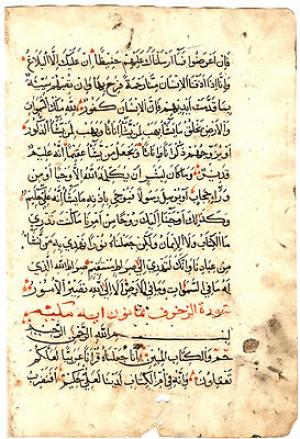 فان اعرضوا فما ارسلناك عليهم حفيظا ان عليك الا البلاغ
وانا اذا اذقنا الانسان منا رحمة فرح بها وان تصبهم سيئة
بما قدمت ايديهم فان الانسان كفور لله ملك السموات
والارض يخلق ما يشاء يهب لمن يشاء اناثا ويهب لمن يشاء الذكور
او يزوجهم ذكرانا واناثا ويجعل من يشاء عقيما انه عليم
قدير وما كان لبشر ان يكلمه الله الا وحيا او من
وراء حجاب او يرسل رسولا فيوحي باذنه ما يشاء انه علي حكيم
وكذلك اوحينا اليك روحا من امرنا ما كنت تدري
ما الكتاب ولا الايمان ولكن جعلناه نورا نهدي به من نشاء
من عبادنا وانك لتهدي الى صراط مستقيم صراط الله الذي
له ما في السموات وما في الارض الا الى الله تصير الامور
سورة الزخرف ثمانون اية مكية
بسم الله الرحمن الرحيم
حم والكتاب المبين انا جعلناه قرانا عربيا لعلكم
تعقلون وانه في ام الكتاب لدينا لعلي حكيم افنضرب